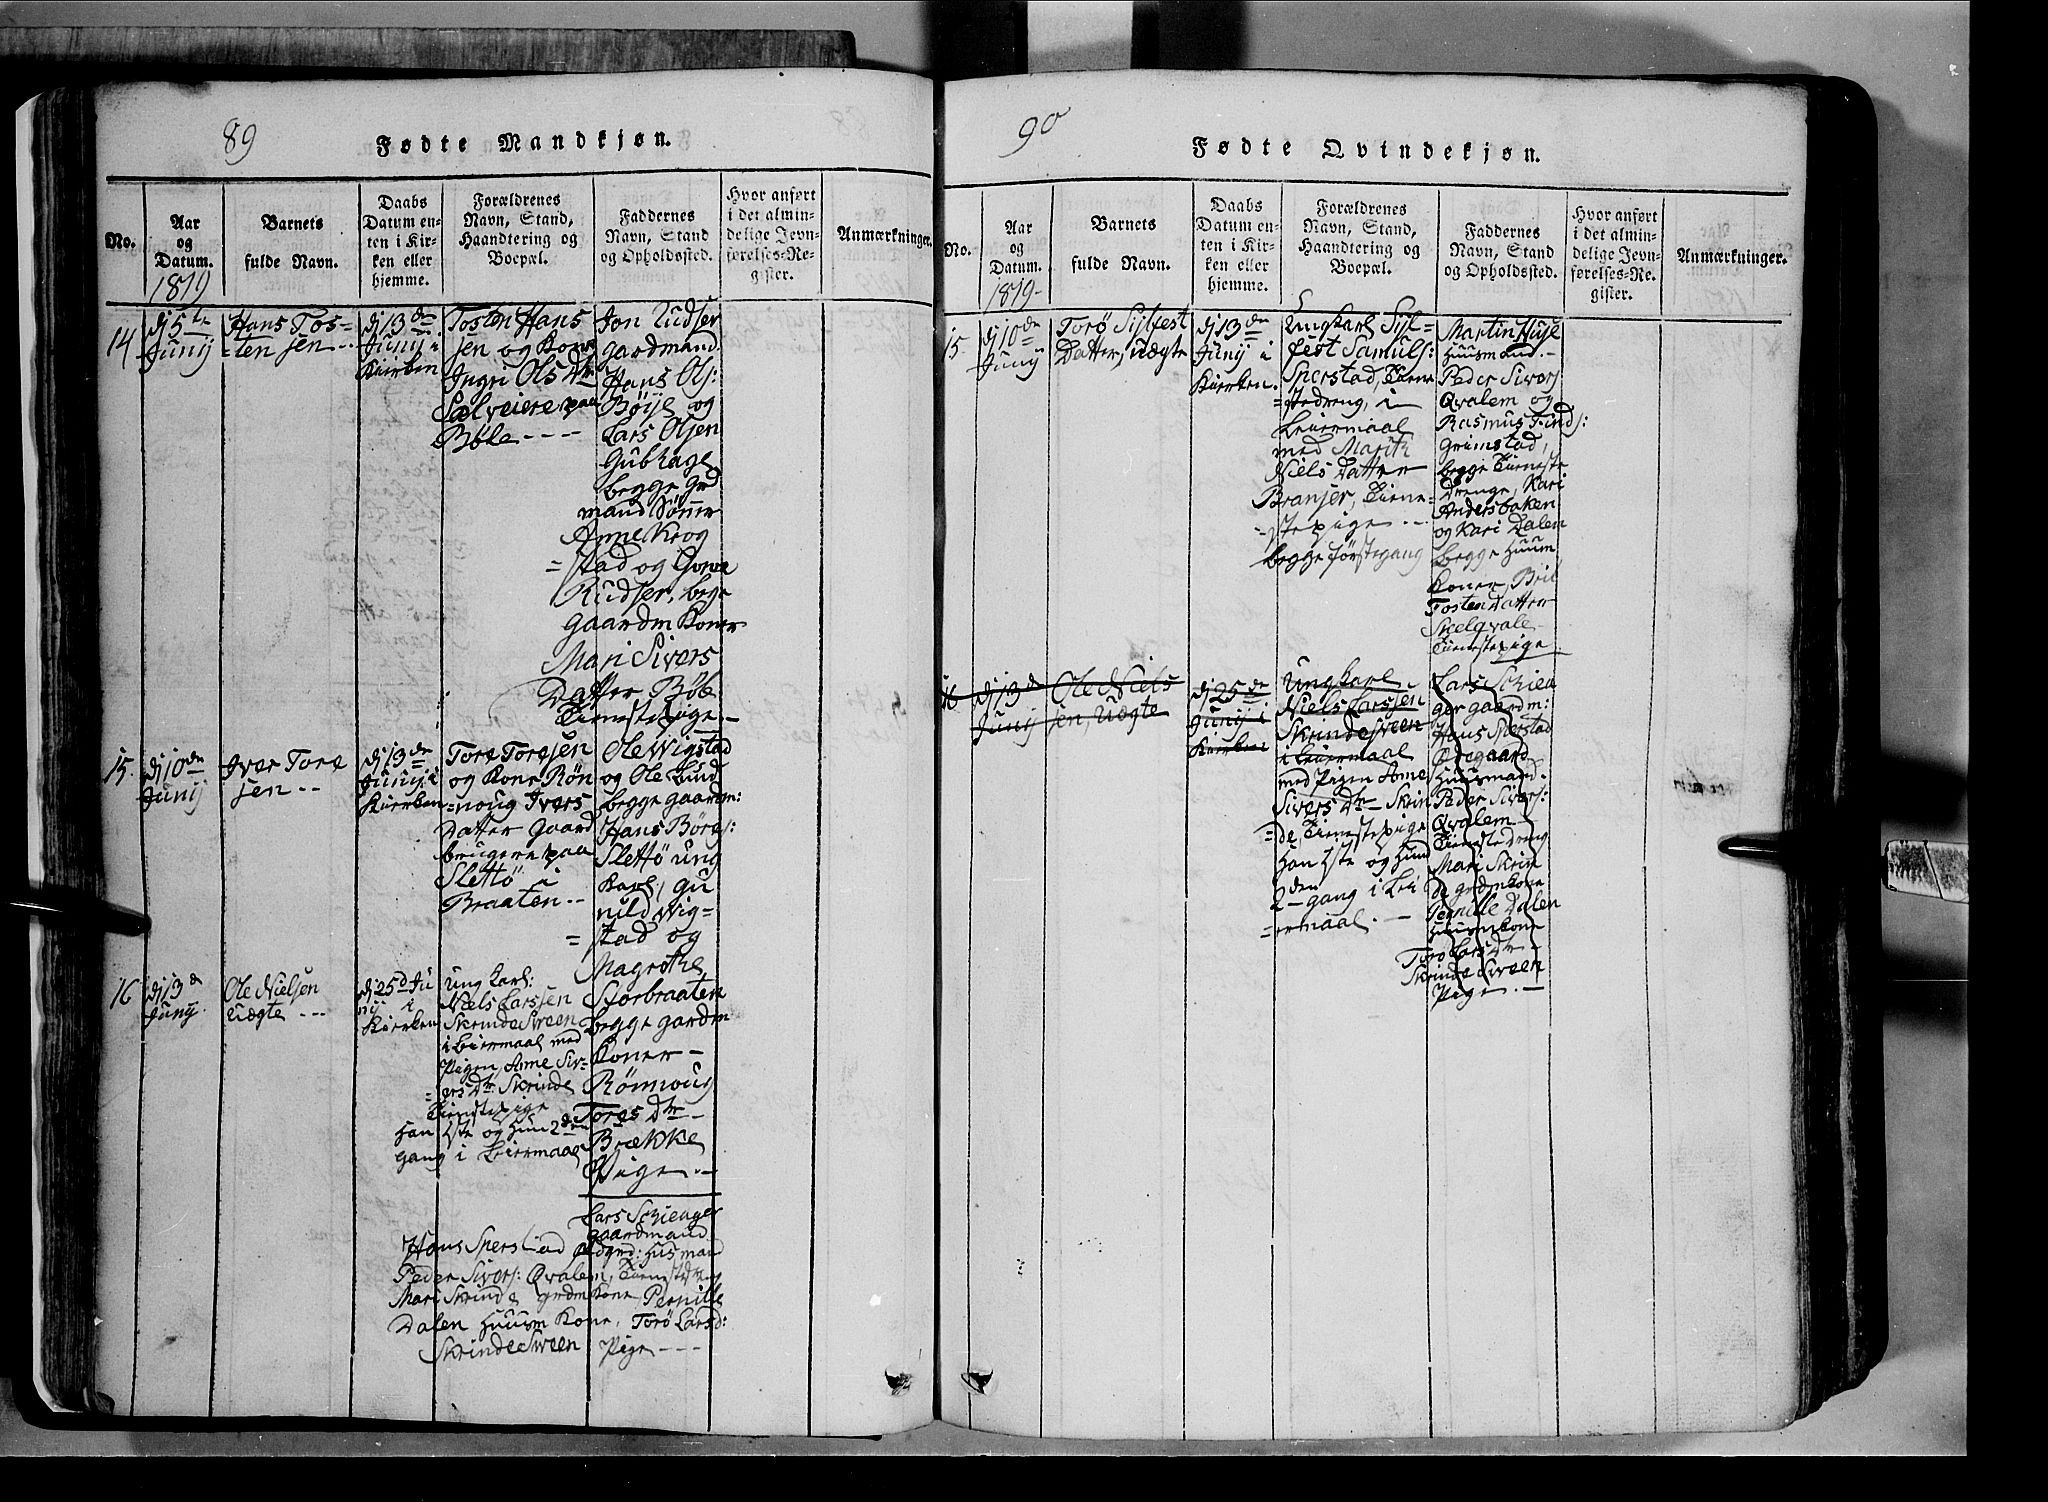 89
Fødte Mandkjøn.
No.
Aar
og
Datum.
1819
Barnets
fulde Navn.
Daabs
Datum en-
ten i Kir-
ken eller
hjemme.
Forældrenes
Navn, Stand,
Haandtering og
Boepæl.
Faddernes
Navn, Stand
og Opholdssted.
Hvor anført
i det almin-
delige Jevn-
førelses-Re-
gister.
Anmærkninger.
14
dj 5te
Junij
Hans Tos-
ten sen --
dj 13de
Junij i
Kierken
Tosten Hans
sen og Kone
Ingri Ols Dtr
Sælveiere paa
Böle ----
Jon Rudser
gardmand.
Hans Ols:
Böije og
Lars Olsen
Gubhage
begge grd
mand Sönner
Anne Krog
=stad og
Rudser, bege
gaardm Koner
Mari Sivers
Datter Böle
Tienestepige.-
15.
dj 10de
Junij
Iver Tore
sen --
dj 13de
Junij i
Kierken
Tore Toresen
og Kone Rön
=noug Ivers
Datter Gaard
brugere paa
Slettö i
Braaten --
Ole Wigstad
og Ole Lund
begge gaardm:
Hans Börs:
Slettö ung
Karl, Gu
nild Wig=
=stad og
Magrethe
Storbraaten
begge gardm
Koner -
Rönnoug
Tores Dtr -
Brække
Pige.-
16
dj 13d
Junij.
Ole Nielsen
Uægte ---
dj 25d Ju
nij i
Kierken
Ung Karl:
Niels Larssen
SkrindeSveen
i Leiermaal med
Pigen Anne Siv=
=ers Dtr Skrinde
Tienstepige
Han 1ste og Hun 2den
Gang i Leiermaal
Lars Schienger
gaardmand
Hans Sperstad Ødgrd: Husmand
Peder Sivers: Qvalem, Tienestdreng
Mari Skrinde grdmkone Pernille
Dalen Huusm Kone, Torö Larsd:
SkrindeSveen Pige ---
90
Fødte Qvindekjøn.
No.
Aar
og
Datum.
1819-
Barnets
fulde Navn.
Daabs
Datum en-
ten i Kir-
ken eller
hjemme.
Forældrenes
Navn, Stand,
Haandtering og
Boepæl.
Faddernes
Navn, Stand
og Opholdssted.
Hvor anført
i det almin-
delige Jevn-
førelses-Re-
gister.
Anmærkninger.
15
dj 10de
Junij
Torö Sylfest
Datter, Uægte
dj 13de
Junij i
Kierken.
Ungkarl Syl=
fest Samuls:
Sperstad, Tiene
=stedreng, i
Leiermaal
med Marith
Niels Datter
Branser, Tiene=
=stepige --
begge förstegang
Martin
Huusmand.-
Peder Sivers
Qvalem og
Rasmus Finds:
Grimstad,
begge Tieneste
Drenge, Kari
Andersbaken
og Kari Dalen
begge Huusm
Koner, Brit
Tosten Datter
Skelqvale
Tienestepige
16
dj 13d
Junij
Ole Niels
sen, Uægte
dj 25de
Junij i
Kierken
Ungkarl
Niels Larssen
SkrindeSveen
i Leiermaal
med Pigen Anne
Sivers Dtr Skrin
=de, Tienestepige
Han 1ste og Hun
2den gang i Lei
=ermaal. -
Lars Schien
ger gaardm:
Hans Sperstad
Ødegaard
Huusmand.
Peder Sivers:
Qvalem -
Tienstedreng
Mari Skrin
de grdmkone
Pernille Dalen
Huusmkone
Torö Lars Dtr -
SkrindeSveen
Pige. -